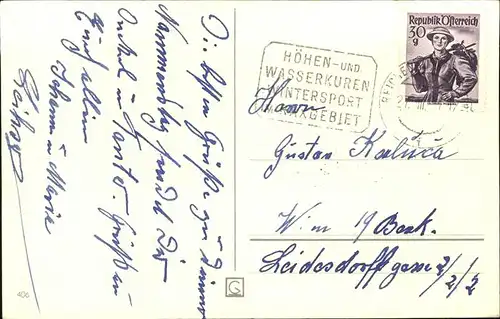 Die besten Grüße zu Deinem
Namenstag sendet Dir
Onkel u Tante. Grüße an
Euch allen
Johann u Marie
Republik Österreich
30
g
HÖHEN- UND
WASSERKUREN
WINTERSPORT
RAXGEBIET
Herrn
Gustav Kaluca
Wien 19 Bezk.
Leidesdorffgasse 2/2/2
406
G